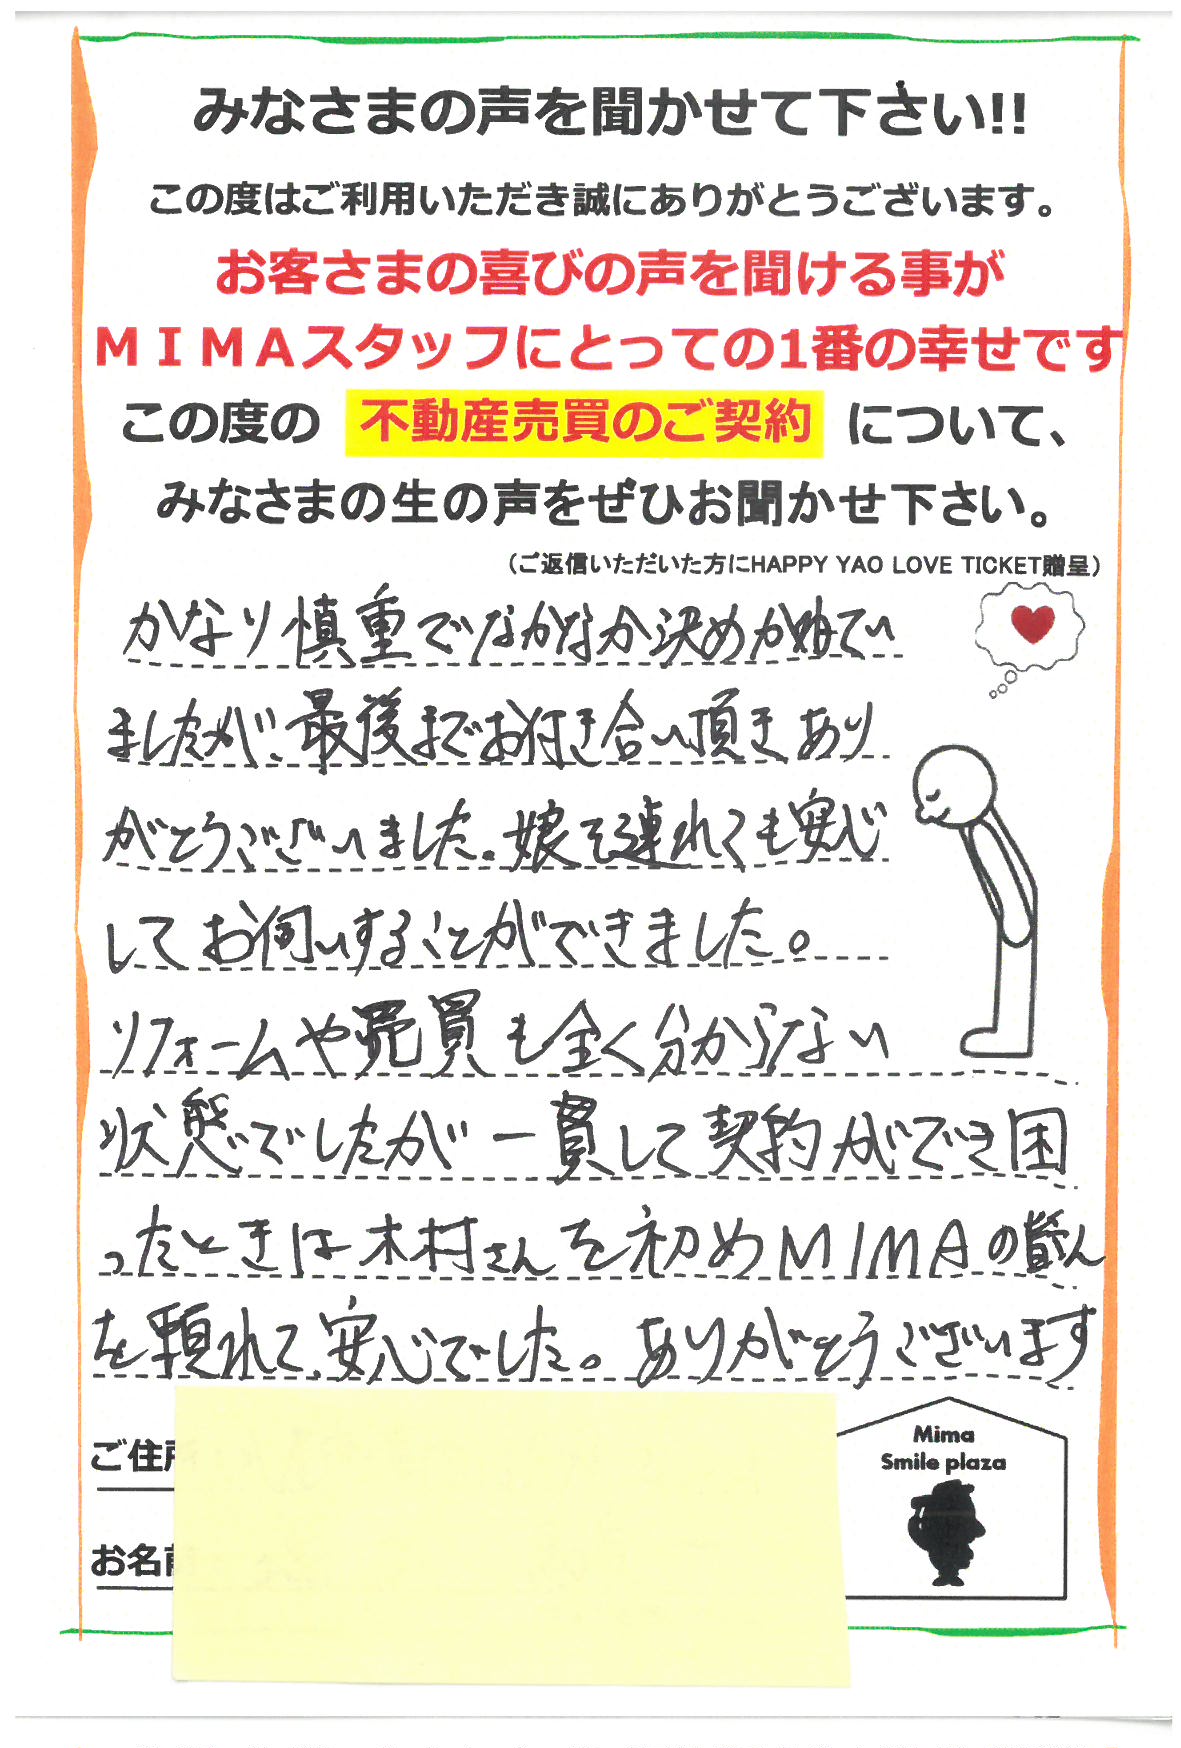 みなさまの声を聞かせて下さい!!
この度はご利用いただき誠にありがとうございます。
お客さまの喜びの声を聞ける事が
ＭＩＭＡスタッフにとっての1番の幸せです
この度の 不動産売買のご契約 について、
みなさまの生の声をぜひお聞かせ下さい。
（ご返信いただいた方にHAPPY YAO LOVE TICKET贈呈）
かなり慎重でなかなか決めかねてい
ましたが、最後までお付き合い頂きあり
がとうございました。娘を連れても安心
してお伺いすることができました。
リフォームや売買も全く分からない
状態でしたが一貫して契約ができ困
ったときは木村さんを初めMIMAの皆さん
を頼れて、安心でした。ありがとうございます
Mima
Smile plaza
ご住所
お名前